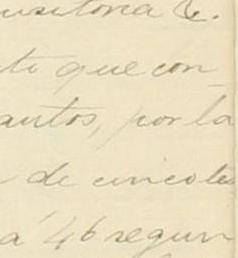 usitoria &.
to que con
autos, por la
de cinco te
a 46 segun